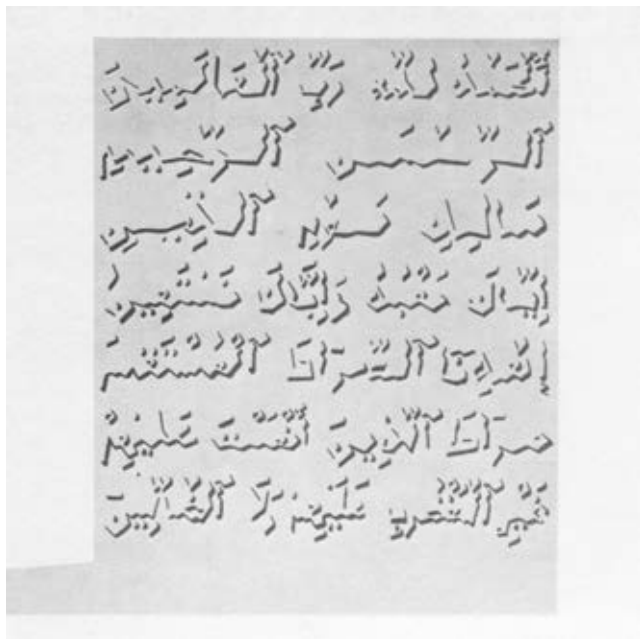 ٱلْحَمْدُ لِلَّهِ رَبِّ ٱلْعَالَمِينَ
ٱلرَّحْمَنِ ٱلرَّحِيمِ
مَالِكِ يَوْمِ ٱلدِّينِ
إِيَّاكَ نَعْبُدُ وَإِيَّاكَ نَسْتَعِينُ
إِهْدِنَا ٱلصِّرَاطَ ٱلْمُسْتَقِيمَ
صِرَاطَ ٱلَّذِينَ أَنْعَمْتَ عَلَيْهِمْ
غَيْرِ ٱلْمَغْضُوبِ عَلَيْهِمْ وَلَا ٱلضَّالِّينَ